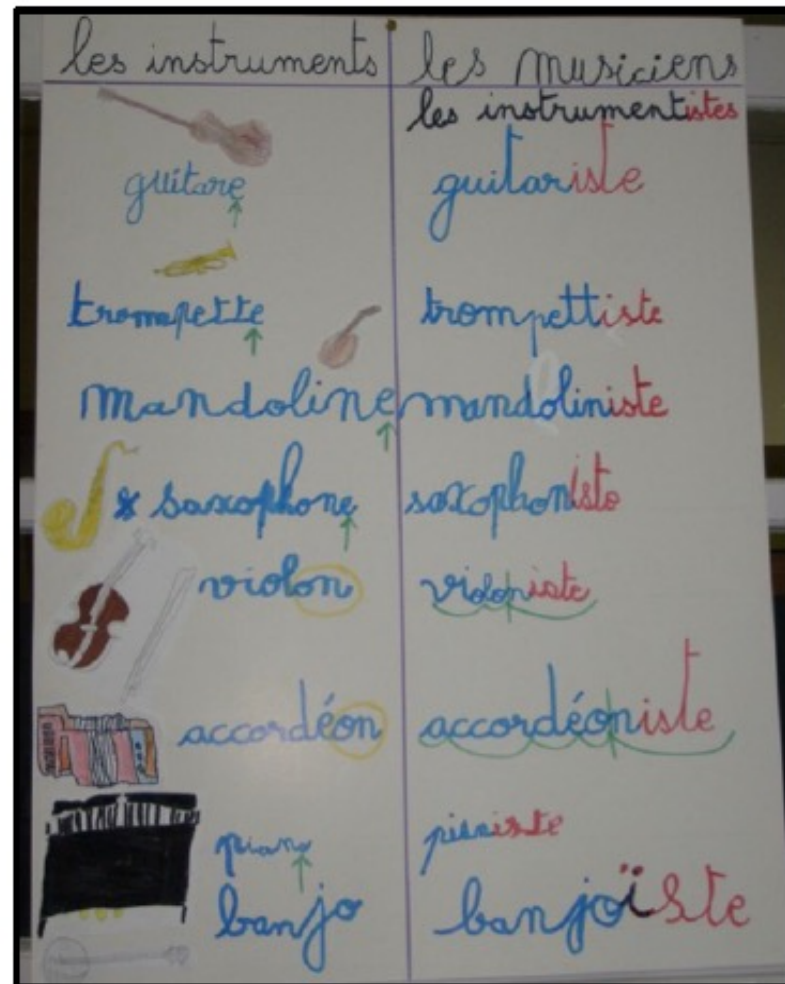 les instruments les musiciens
les instrumentistes
guitare guitariste
trompette trompettiste
mandoline mandoliniste
saxophone saxophoniste
violon violoniste
accordéon accordéoniste
piano pianiste
banjo banjoïste